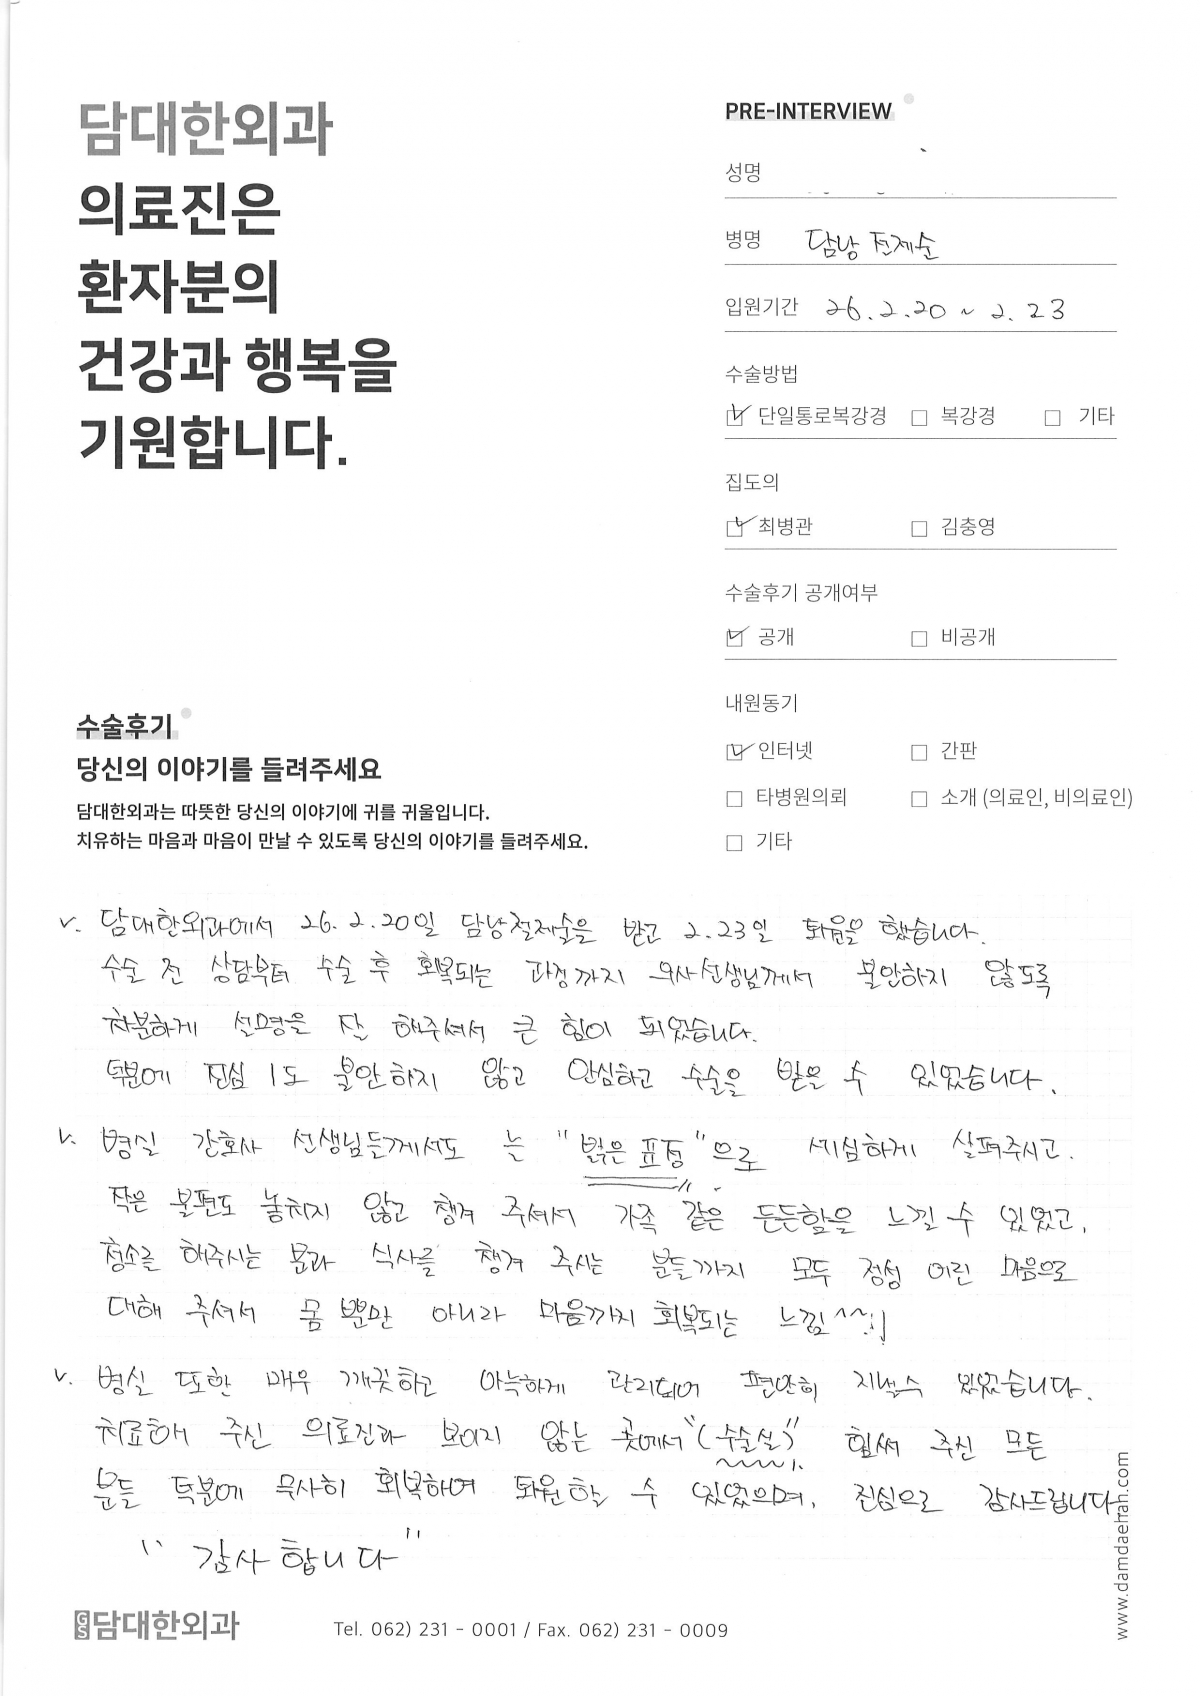 담대한외과
의료진은
환자분의
건강과 행복을
기원합니다.
PRE-INTERVIEW
성명
병명 담낭 전제술
입원기간 26.2.20 ~ 2.23
수술방법
☑ 단일통로복강경 □ 복강경 □ 기타
집도의
☑ 최병관 □ 김충영
수술후기 공개여부
☑ 공개 □ 비공개
내원동기
☑ 인터넷 □ 간판
□ 타병원의뢰 □ 소개 (의료인, 비의료인)
□ 기타
수술후기
당신의 이야기를 들려주세요
담대한외과는 따뜻한 당신의 이야기에 귀를 귀울입니다.
치유하는 마음과 마음이 만날 수 있도록 당신의 이야기를 들려주세요.
v. 담대한외과에서 26.2.20일 담낭절제술을 받고 2.23일 퇴원을 했습니다.
수술 전 상담부터 수술 후 회복되는 과정까지 의사선생님께서 불안하지 않도록
차분하게 설명을 잘 해주셔서 큰 힘이 되었습니다.
덕분에 진심 1도 불안하지 않고 안심하고 수술을 받을 수 있었습니다.
v. 병실 간호사 선생님들께서도 늘 "밝은 표정"으로 세심하게 살펴주시고.
작은 불편도 놓치지 않고 챙겨 주셔서 가족 같은 든든함을 느낄 수 있었고,
청소를 해주시는 분과 식사를 챙겨 주시는 분들까지 모두 정성 어린 마음으로
대해 주셔서 몸 뿐만 아니라 마음까지 회복되는 느낌^^!
v. 병실 또한 매우 깨끗하고 아늑하게 관리되어 편안히 지낼수 있었습니다.
치료해 주신 의료진과 보이지 않는 곳에서"(수술실)" 힘써 주신 모든
분들 덕분에 무사히 회복하여 퇴원할 수 있었으며, 진심으로 감사드립니다
"감사합니다"
GS담대한외과
Tel. 062) 231 - 0001 / Fax. 062) 231 - 0009
www.damdaehan.com